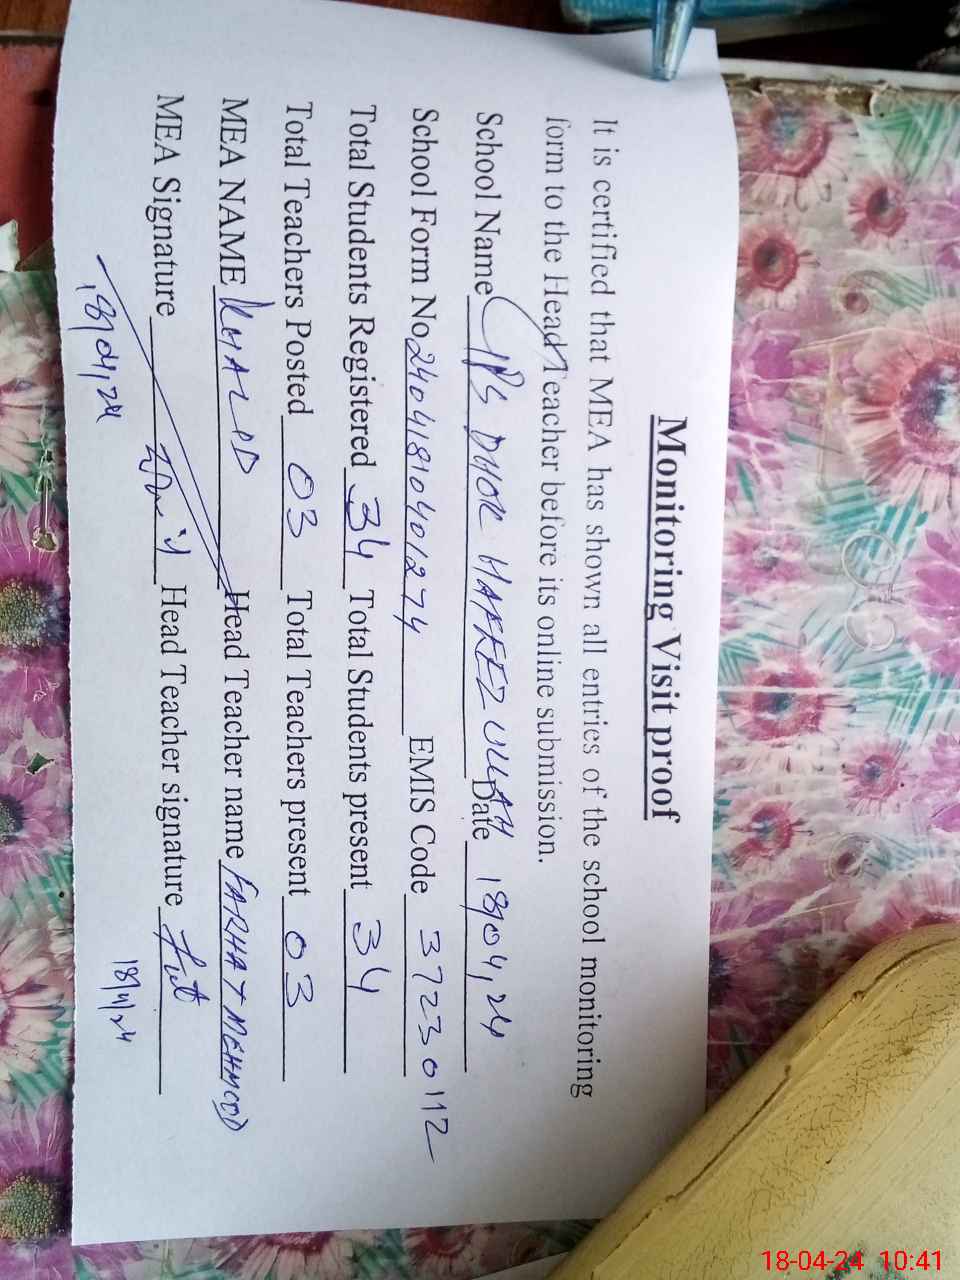 Monitoring Visit proof
It is certified that MEA has shown all entries of the school monitoring
form to the Head Teacher before its online submission.
School Name GPS DHOK HAFEEZ ULLAH Date 18/04/24
School Form No 240418104012 74 EMIS Code 37230112
Total Students Registered 34 Total Students present 34
Total Teachers Posted 03 Total Teachers present 03
MEA NAME KHALID Head Teacher name FARHAT MEHMOOD
MEA Signature Head Teacher signature
18/04/24 18/4/24
18-04-24 10:41